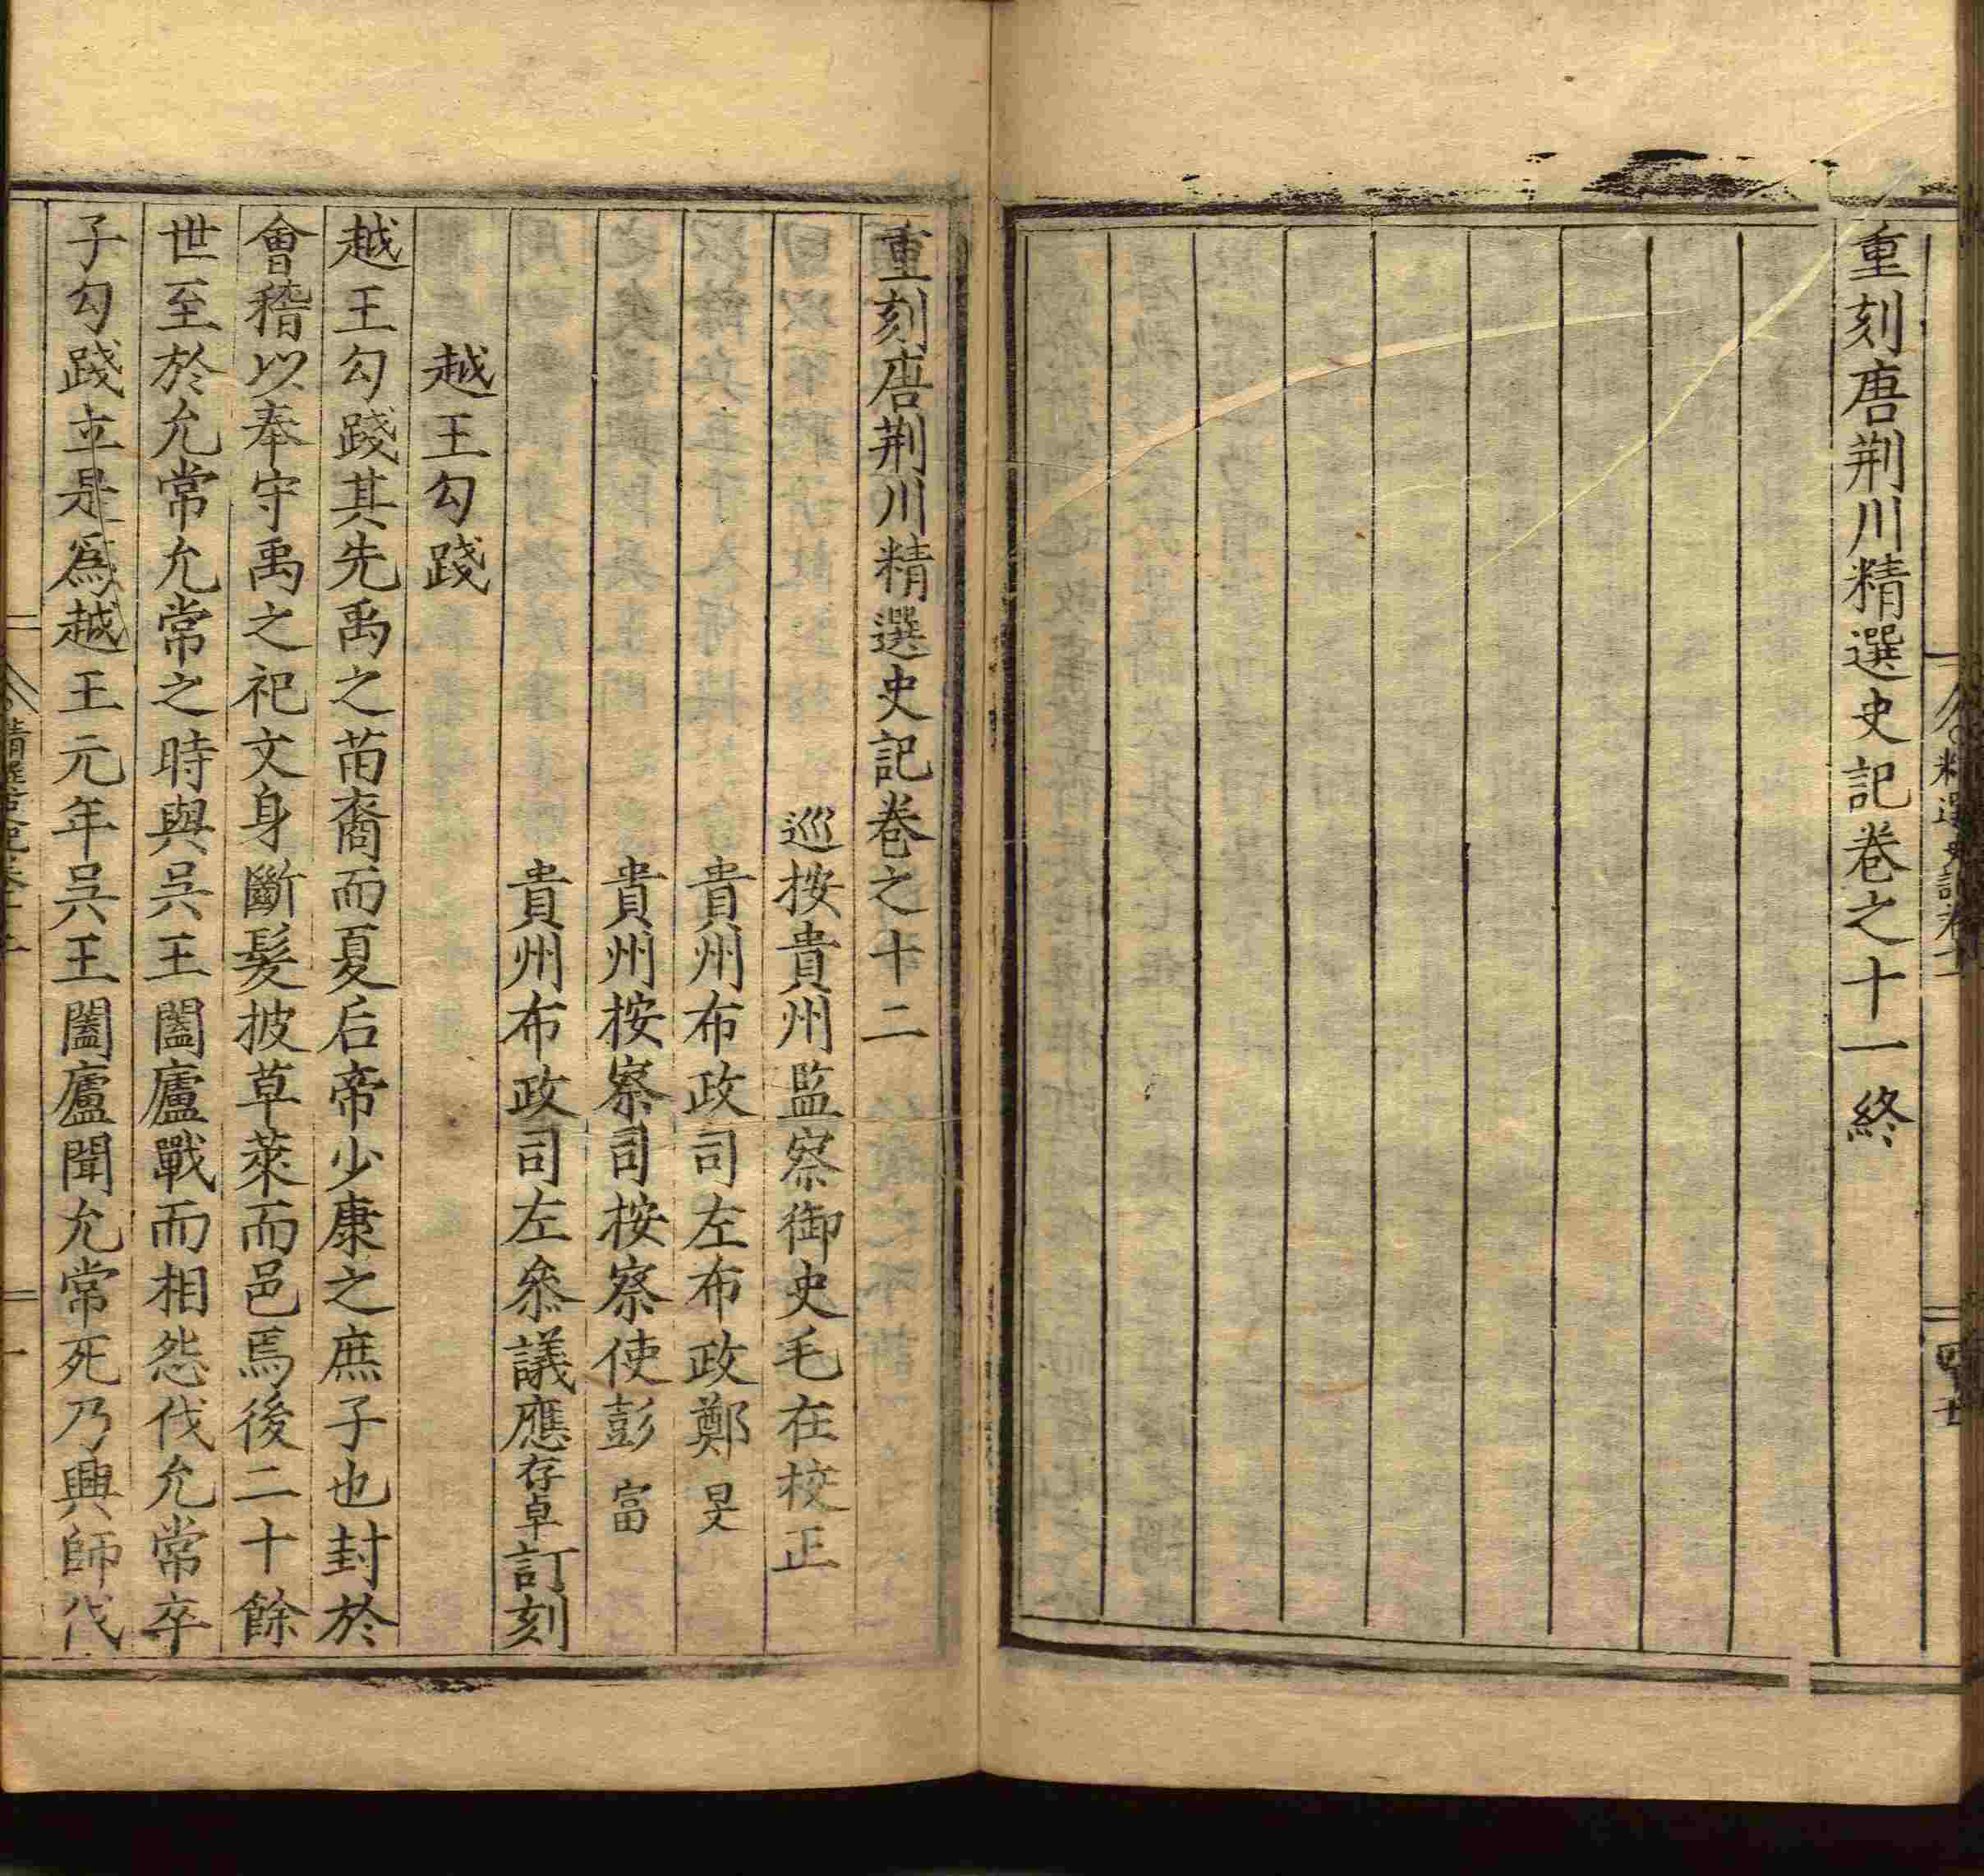 重刻唐荆川精選史記卷之十一終
重刻唐荆川精選史記卷之十二
巡按貴州監察御史毛在校正
貴州布政司左布政鄭旻
貴州按察司按察使彭富
貴州布政司左叅議應存卓訂刻
越王勾踐
越王勾踐其先禹之苗裔而夏后帝少康之庶子也封於
會稽以奉守禹之祀文身斷髮披草萊而邑焉後二十餘
世至於允常允常之時與吳王闔廬戰而相怨伐允常卒
子勾踐立是爲越王元年吳王闔廬聞允常死乃興師伐